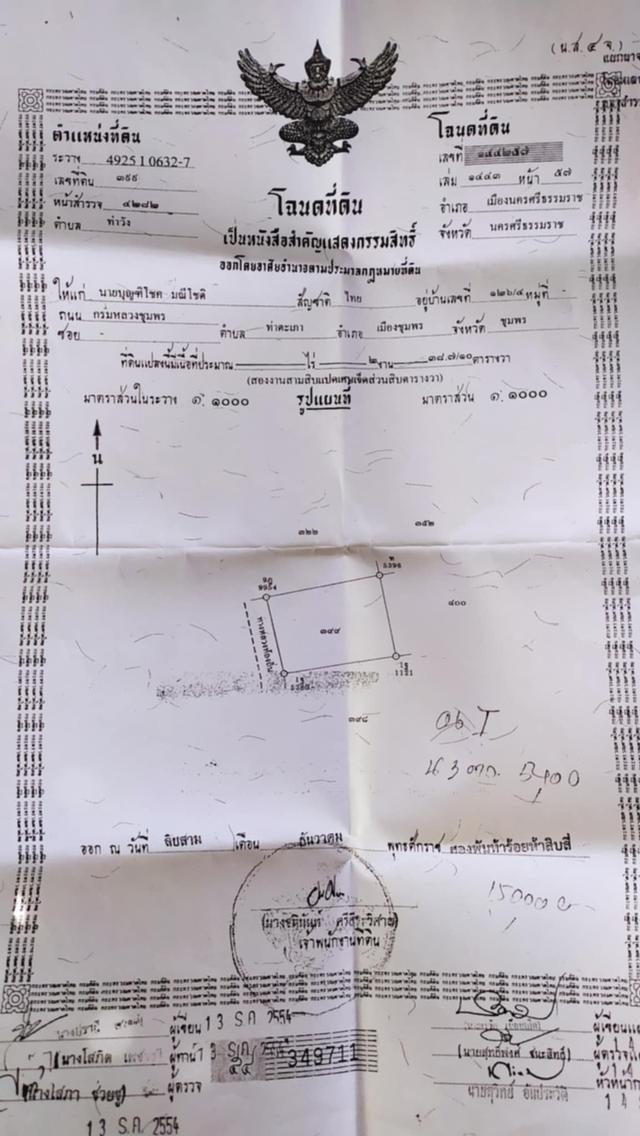 (น.ส. ๔ จ.)
ตำแหน่งที่ดิน
ระวาง 4925 I 0632-7
เลขที่ดิน ๓๙๙
หน้าสำรวจ ๔๒๘๒
ตำบล ท่าวัง
โฉนดที่ดิน
เลขที่ ๑๔๔๒๕๗
เล่ม ๑๔๔๓ หน้า ๕๗
อำเภอ เมืองนครศรีธรรมราช
จังหวัด นครศรีธรรมราช
โฉนดที่ดิน
เป็นหนังสือสำคัญแสดงกรรมสิทธิ์
ออกโดยอาศัยอำนาจตามประมวลกฎหมายที่ดิน
ให้แก่ นายบุญฑิโชค มณีโชติ สัญชาติ ไทย อยู่บ้านเลขที่ ๑๒๖/๔ หมู่ที่
ถนน กรมหลวงชุมพร
ซอย ตำบล ท่าตะเภา อำเภอ เมืองชุมพร จังหวัด ชุมพร
ที่ดินแปลงนี้มีเนื้อที่ประมาณ ไร่ ๒ งาน ๓๘.๗/๑๐ ตารางวา
(สองงานสามสิบแปดเศษเจ็ดส่วนสิบตารางวา)
มาตราส่วนในระวาง ๑: ๑๐๐๐ รูปแผนที่ มาตราส่วน ๑: ๑๐๐๐
น
๓๒๒ ๓๕๒
5396
9954
๔๐๐
๓๙๙
ทางหลวงท้องถิ่น
1121
๓๙๘
15000
ออก ณ วันที่ สิบสาม เดือน ธันวาคม พุทธศักราช สองพันห้าร้อยห้าสิบสี่
เจ้าพนักงานที่ดิน
ผู้เขียน 13 ธ.ค. 2554
(นางโสภิต
349711
ผู้ตรวจ
13 ธ.ค. 2554
(นายสุทธิพงศ์ ชนะสิทธิ์)
นายสุวิทย์ อันประวัติ